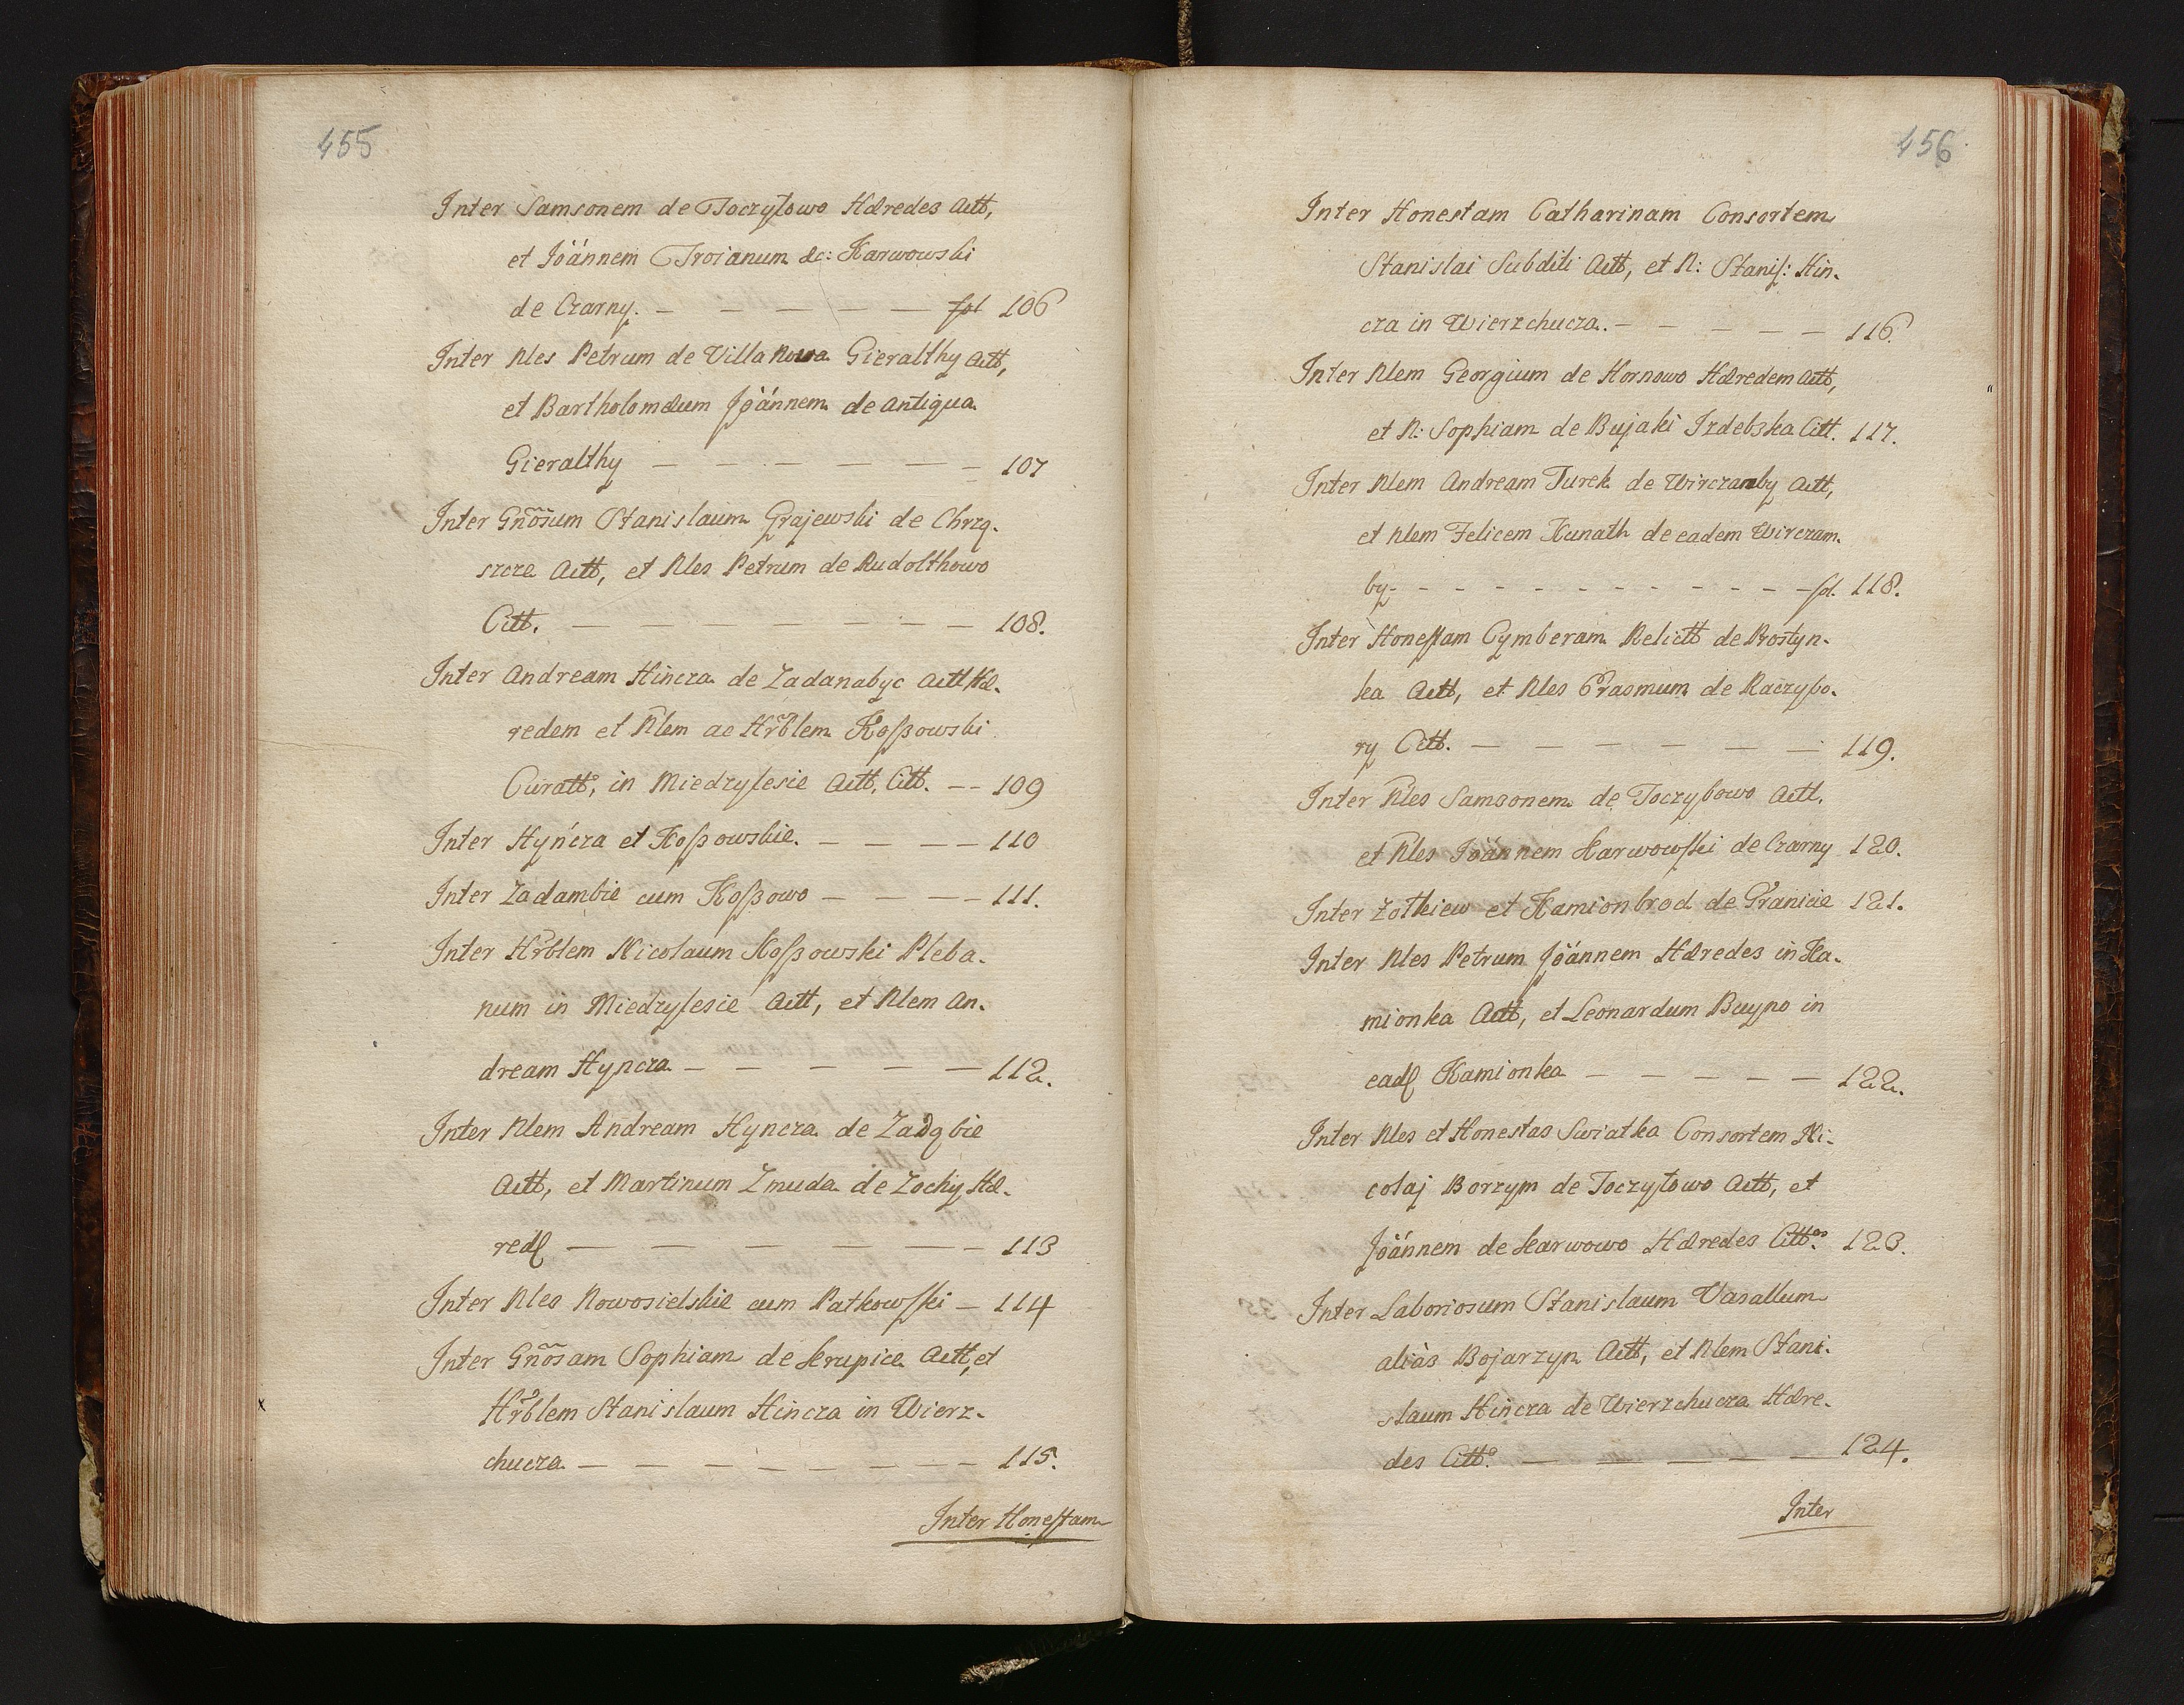 455
Inter Samsonem de Toczyłowo Hæredes Actt,
et Joánnem Troianum &c: Karwowski
de Czarny. — — — — — fol 106
Inter Nles Petrum de Villa Nowa Gieralthy Actt,
et Bartholomæum Joánnem de antiqua
Gieralthy — — — — — — 107
Inter Gñõsum Stanislaum Grajewski de Chrzą-
szcze Actt, et Nles Petrum de Rudolthowo
Citt. — — — — — — — 108.
Inter Andream Hincza de Zadanabyc Actt Hæ-
redem et Nlem ac Hrblem Koßowski
Curatt, in Miedzylesie Actt, Citt. — — 109
Inter Hyńcza et Koßowskie. — — — — 110
Inter Zadambie cum Koßowo — — — — 111.
Inter Hrblem Nicolaum Koßowski Pleba-
num in Miedzylesie Actt, et Nlem An-
dream Hyncza — — — — — 112.
Inter Nlem Andream Hyncza de Zadąbie
Actt, et Martinum Zmuda de Zochy Hæ-
red — — — — — — 113
Inter Nles Nowosielskie cum Patkowski — 114
Inter Gñõsam Sophiam de Krupice Actt, et
Hrblem Stanislaum Hincza in Wierz-
chucza — — — — — — — 115.
Inter Honestam
456
Inter Honestam Catharinam Consortem
Stanislai Subditi Actt, et N: Stanis: Hin-
cza in Wierzchucza. — — — — — 116.
Inter Nlem Georgium de Hornowo Hæredem Actt,
et N: Sophiam de Bujaki Izdebska Citt. 117.
Inter Nlem Andream Turek de Wirczamby Actt,
et Nlem Felicem Kunath de eadem Wirczam-
by - - - - - - - - - - - fol. 118.
Inter Honestam Cymberam Relictt de Prostyn-
ka Actt, et Nles Erasmum de Raczybo-
ry Citt. — — — — — — 119.
Inter Nles Samsonem de Toczyłowo Actt,
et Nles Joánnem Karwowski de Czarny 120.
Inter Zołkiew et Kamionbrod de Granicie 121.
Inter Nles Petrum Joánnem Hæredes in Ka-
mionka Actt, et Leonardum Buyno in
ead Kamionka — — — — — 122.
Inter Nles et Honestas Swiatka Consortem Ni-
colaj Borzym de Toczyłowo Actt, et
Joánnem de Karwowo Hæredes Cittos. 123.
Inter Laboriosum Stanislaum Vasallum
aliàs Bojarzyn Actt, et Nlem Stani-
slaum Hincza de Wierzchucza Hære-
des Citt. — — — — — 124.
Inter